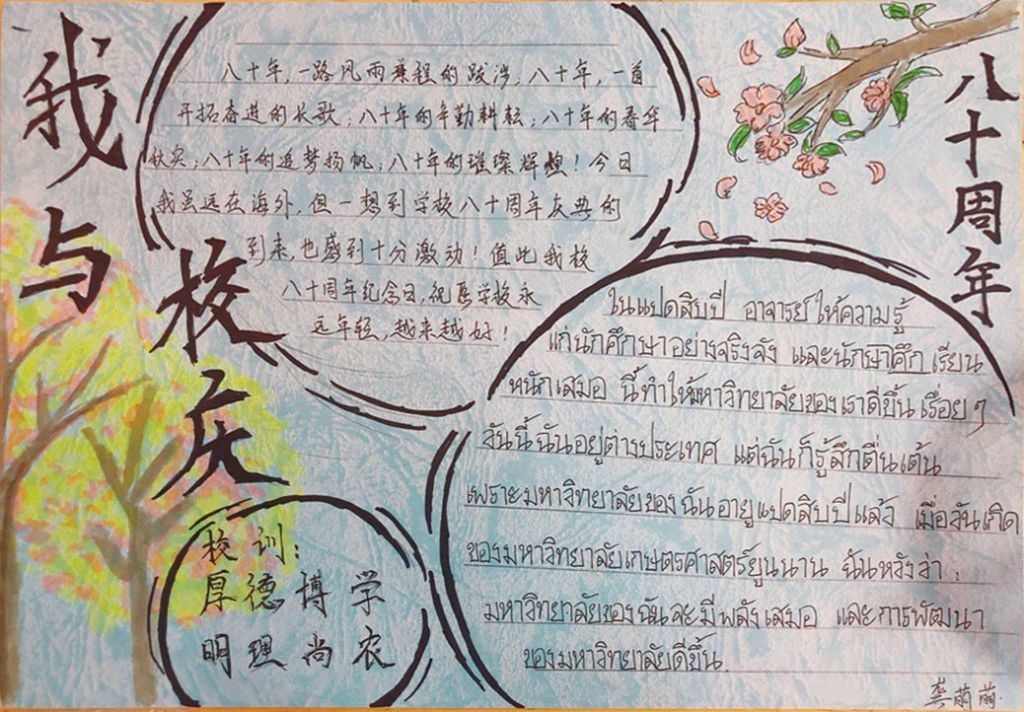 我与
校庆
八十周年
八十年,一路风雨兼程的跋涉,八十年,一首
开拓奋进的长歌;八十年的辛勤耕耘;八十年的春华
秋实;八十年的追梦扬帆,八十年的璀璨辉煌!今日
我虽远在海外,但一想到学校八十周年庆典的
到来,也感到十分激动!值此我校
八十周年纪念日,祝愿学校永
远年轻,越来越好!
ในแปดสิบปี อาจารย์ให้ความรู้
แก่นักศึกษาอย่างจริงจัง และนักษาศึก เรียน
หนักเสมอ นี้ทำให้มหาวิทยาลัยของเราดีขึ้นเรื่อยๆ
วันนี้ฉันอยู่ต่างประเทศ แต่ฉันก็รู้สึกตื่นเต้น
เพราะมหาวิทยาลัยของฉันอายุแปดสิบปีแล้ว เมื่อวันเกิด
ของมหาวิทยาลัยเกษตรศาสตร์ยูนนาน ฉันหวังว่า:
มหาวิทยาลัยของฉันจะมีพลังเสมอ และการพัฒนา
ของมหาวิทยาลัยดีขึ้น.
校训:
厚德博学
明理尚农
龚萌萌.